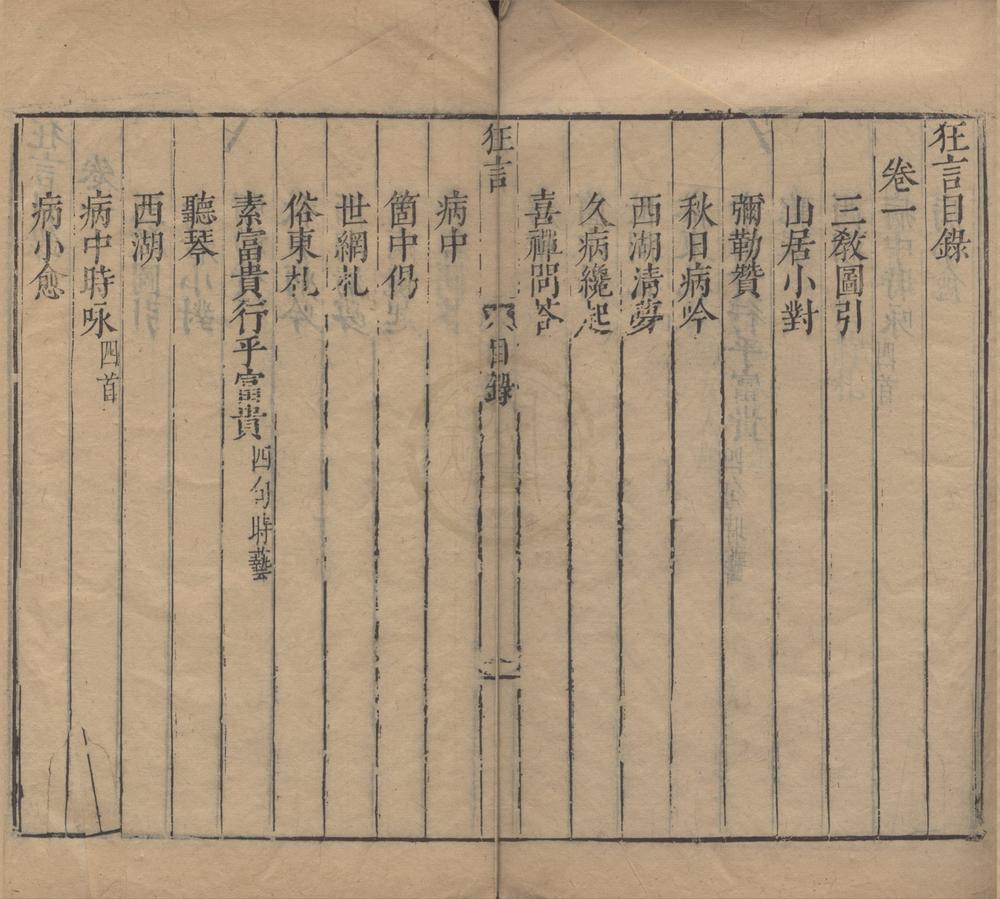 狂言目錄
卷一
三教圖引
山居小對
彌勒贊
秋日病吟
西湖清夢
久病纔起
喜禪問答
狂言 目錄 一
病中
箇中偈
世網札
俗東札
素富貴行乎富貴 四句時藝
聽琴
西湖
病中時咏 四首
病小愈